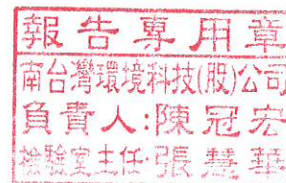 報告專用章
南台灣環境科技(股)公司
負責人:陳冠宏
檢驗室主任:張慧